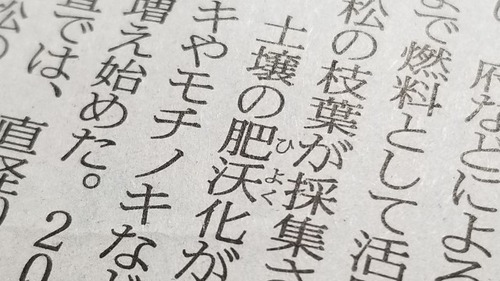 府などによる
まで燃料として活
松の枝葉が採集さ
土壌の肥沃化が
ひよく
キやモチノキなど
増え始めた。20
では、直径
松の